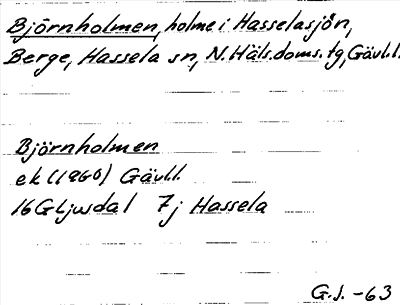 Björnholmen, holme i Hasselasjön,
Berge, Hassela sn, N. Häls. doms. tg, Gävl.l.
Björnholmen
ek (1860) Gävl.l.
16G Ljusdal 7j Hassela
G.J. -63